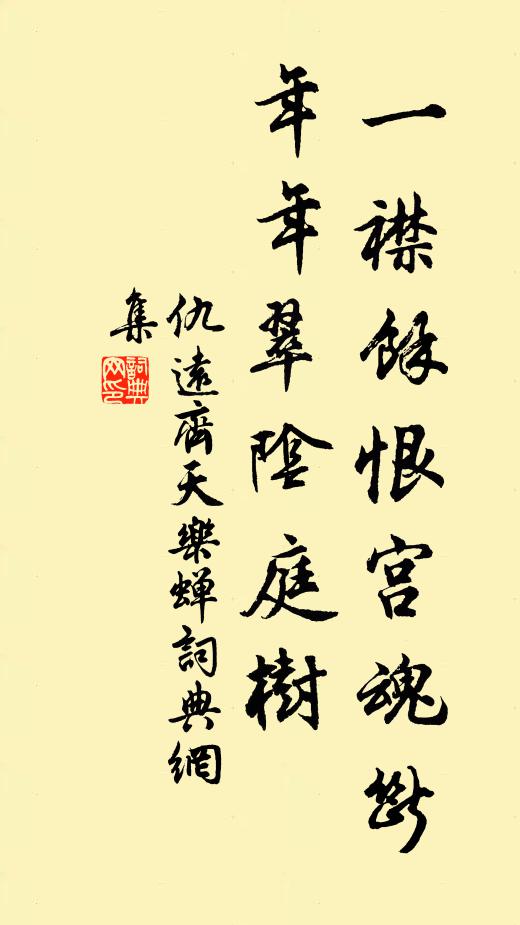 一襟餘恨宮魂斷
年年翠陰庭樹
仇遠齊天樂蟬詞典網
集
詞典
网印